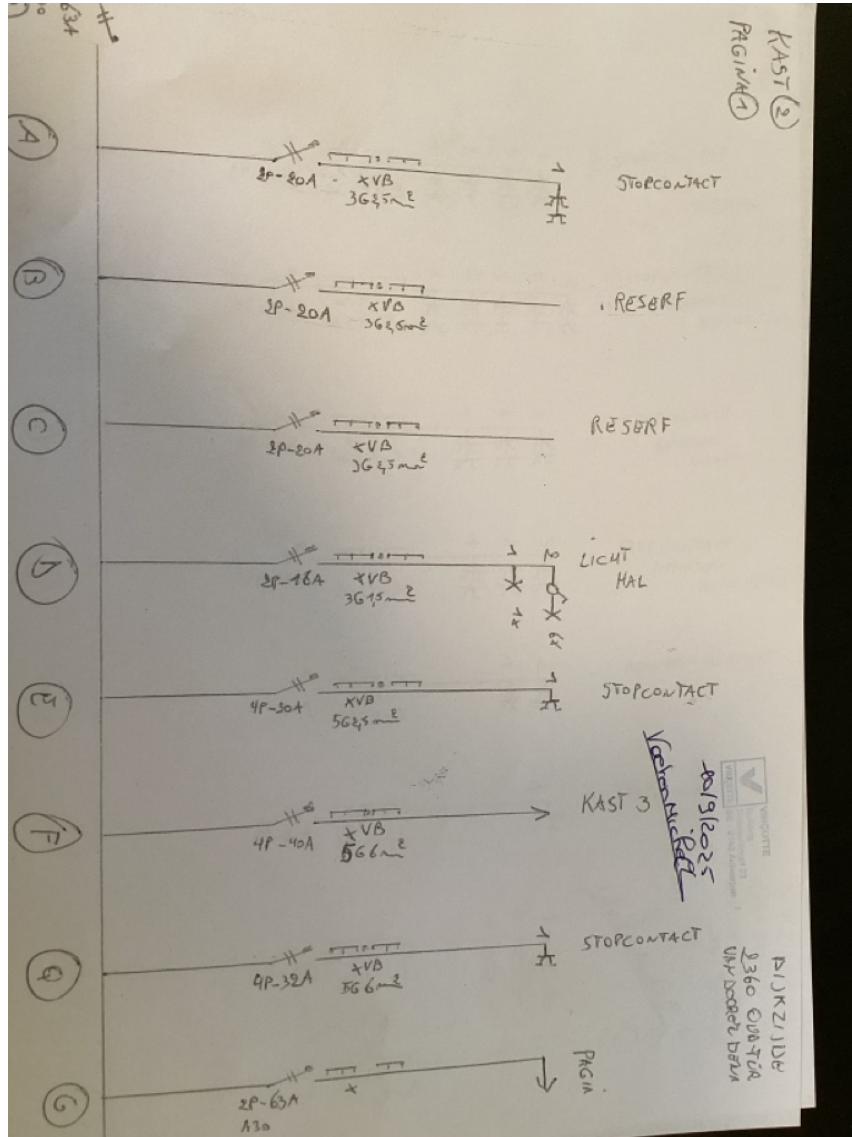 KAST ②
PAGINA ①
63A
A
2P-20A
XVB
3G2,5mm²
1
STOPCONTACT
B
2P-20A
XVB
3G2,5mm²
RESERF
C
2P-20A
XVB
3G2,5mm²
RESERF
D
2P-16A
XVB
3G1,5mm²
1
1x
2
6x
LICHT
HAL
E
4P-20A
XVB
5G2,5mm²
1
STOPCONTACT
F
4P-40A
XVB
5G6mm²
KAST 3
4P-32A
XVB
5G6mm²
1
STOPCONTACT
G
2P-63A
A30
X
PAGIN
VINÇOTTE
DIJKZIJDE
2360 OUD-TUR